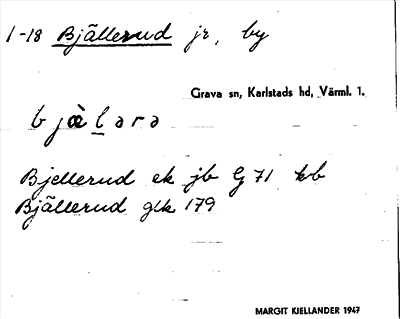 1-18 Bjällerud jr, by
Grava sn, Karlstads hd, Värml. l.
bjælərə
Bjellerud ek jb G 71 kb
Bjällerud gsk 179
MARGIT KJELLANDER 1947